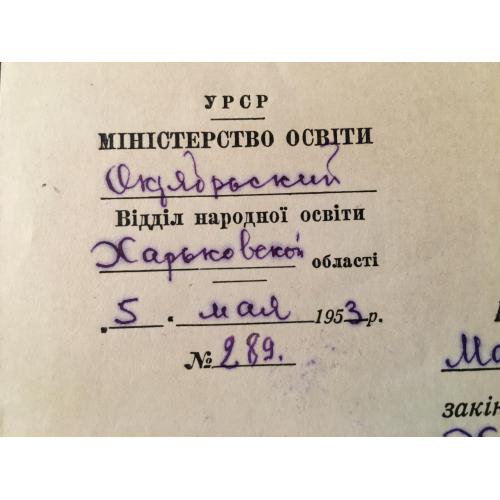 УРСР
МІНІСТЕРСТВО ОСВІТИ
Октябрьский
Відділ народної освіти
Харьковской області
„5" мая 1953 р.
№ 289.
Мо
закін